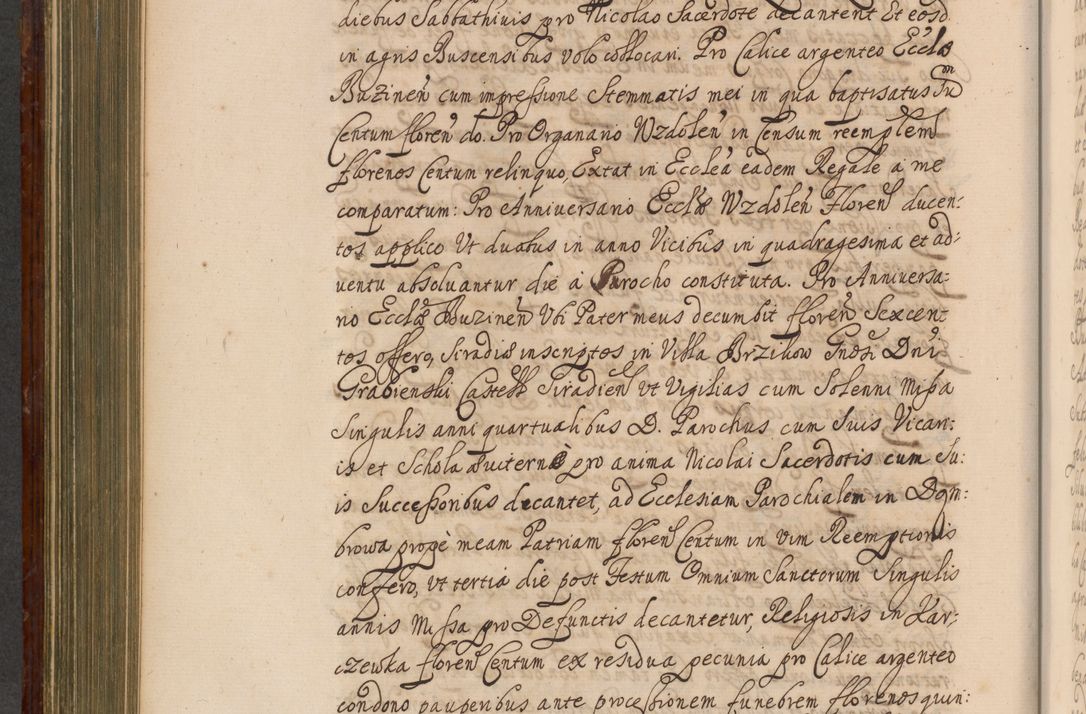 diebus Sabbathivis pro Nicolao Sacerdote decantent Et eosd
in agris Buscensibus volo collocari. Pro Calice argenteo Eccłæ
Buzineń cum impressione Stemmatis mei in qua baptisatus Sum
Centum floreń do. Pro Organario Wzdoleń in Censum reemptem
florenos Centum relinquo, Extat in Eccleã eadem Regale a me
comparatum: Pro Anniversario Ecclæ Wzdoleń Floreń ducen:
tos applico Ut duabus in anno Vicibus in quadragesima et ad:
ventu absolvantur die à Parocho constituta. Pro Anniversa:
rio Ecclæ Buzineń Ubi Pater meus decumbit floreń Sexcen:
tos offero, Siradiæ inscriptos in Villa Brzikow Gnosi Dni
Grabienski Castell Siradień ut Vigilias cum Solenni Missa
Singulis anni quartualibus D. Parochus cum Suis Vicari:
is et Schola alternè pro anima Nicolai Sacerdotis cum Su:
is Successoribus decantet, ad Ecclesiam Parochialem in Dom:
browa propè meam Patriam floreń Centum in vim Reemptionis
confero, ut tertia die post Festum Omnium Sanctorum Singulis
annis Missa pro Defunctis decantetur, Religiosis in Kar:
czewka floreń Centum ex residua pecunia pro Calice argenteo
condono pauperibus ante processionem funebrem florenos quin: